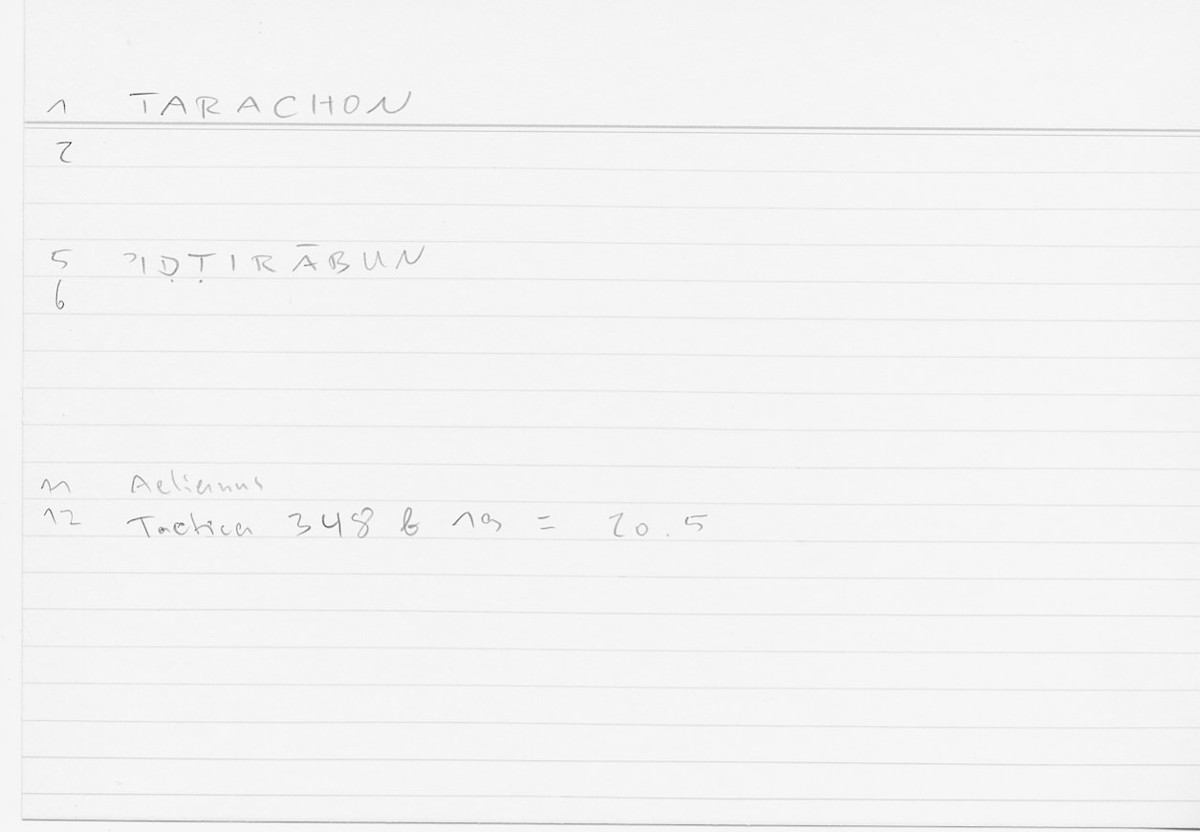 1 TARACHON
2
5 ʾIḌṬIRĀBUN
6
11 Aelianus
12 Tactica 348 b 19 = 20.5